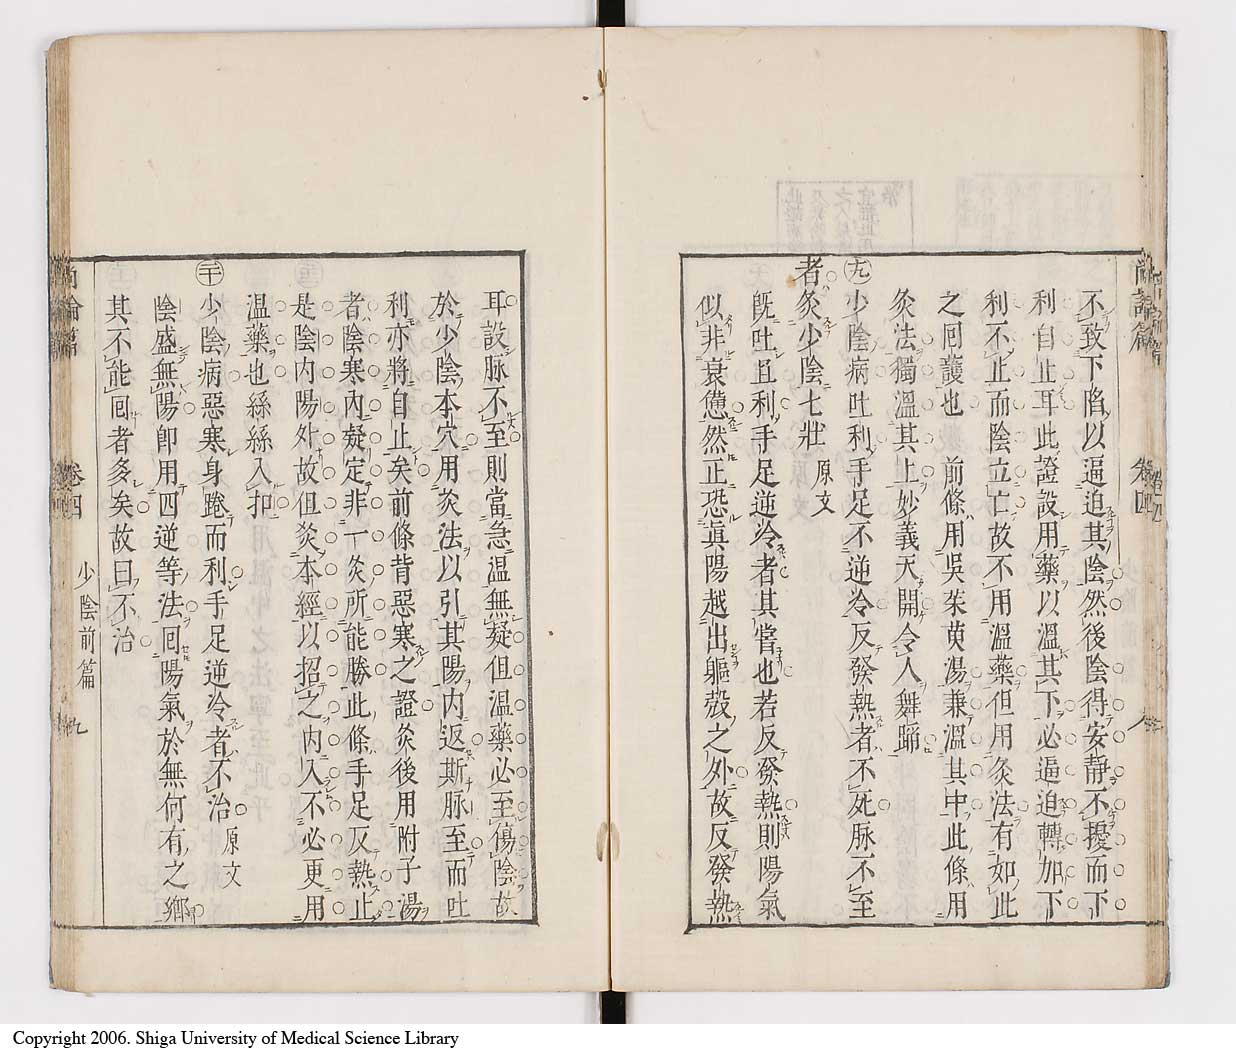 不致下陷以逼迫其陰然後陰得安靜不擾而下
利自止耳此證設用藥以溫其下必逼迫轉加下
利不止而陰立亡故不用溫藥但用灸法有如此
之囘護也前條用吳茱萸湯兼溫其中此條用
灸法獨溫其上妙義天開令人舞蹄
九 少陰病吐利手足不逆冷反發熱者不死脉不至
者灸少陰七壯 原文
旣吐且利手足逆冷者其嘗也若反發熱則陽氣
似非衰憊然正恐眞陽越出軀殼之外故反發熱
耳設脉不至則當急溫無疑但溫藥必至傷陰故
於少陰本穴用灸法以引其陽內返斯脉至而吐
利亦將自止矣前條背惡寒之證灸後用附子湯
者陰寒內凝定非一灸所能勝此條手足反熱止
是陰內陽外故但灸本經以招之內入不必更用
溫藥也絲絲入扣
二十 少陰病惡寒身踡而利手足逆冷者不治 原文
陰盛無陽卽用四逆等法囘陽氣於無何有之鄉
其不能囘者多矣故曰不治
尙論篇 卷四 少陰前篇 九
Copyright 2006. Shiga University of Medical Science Library